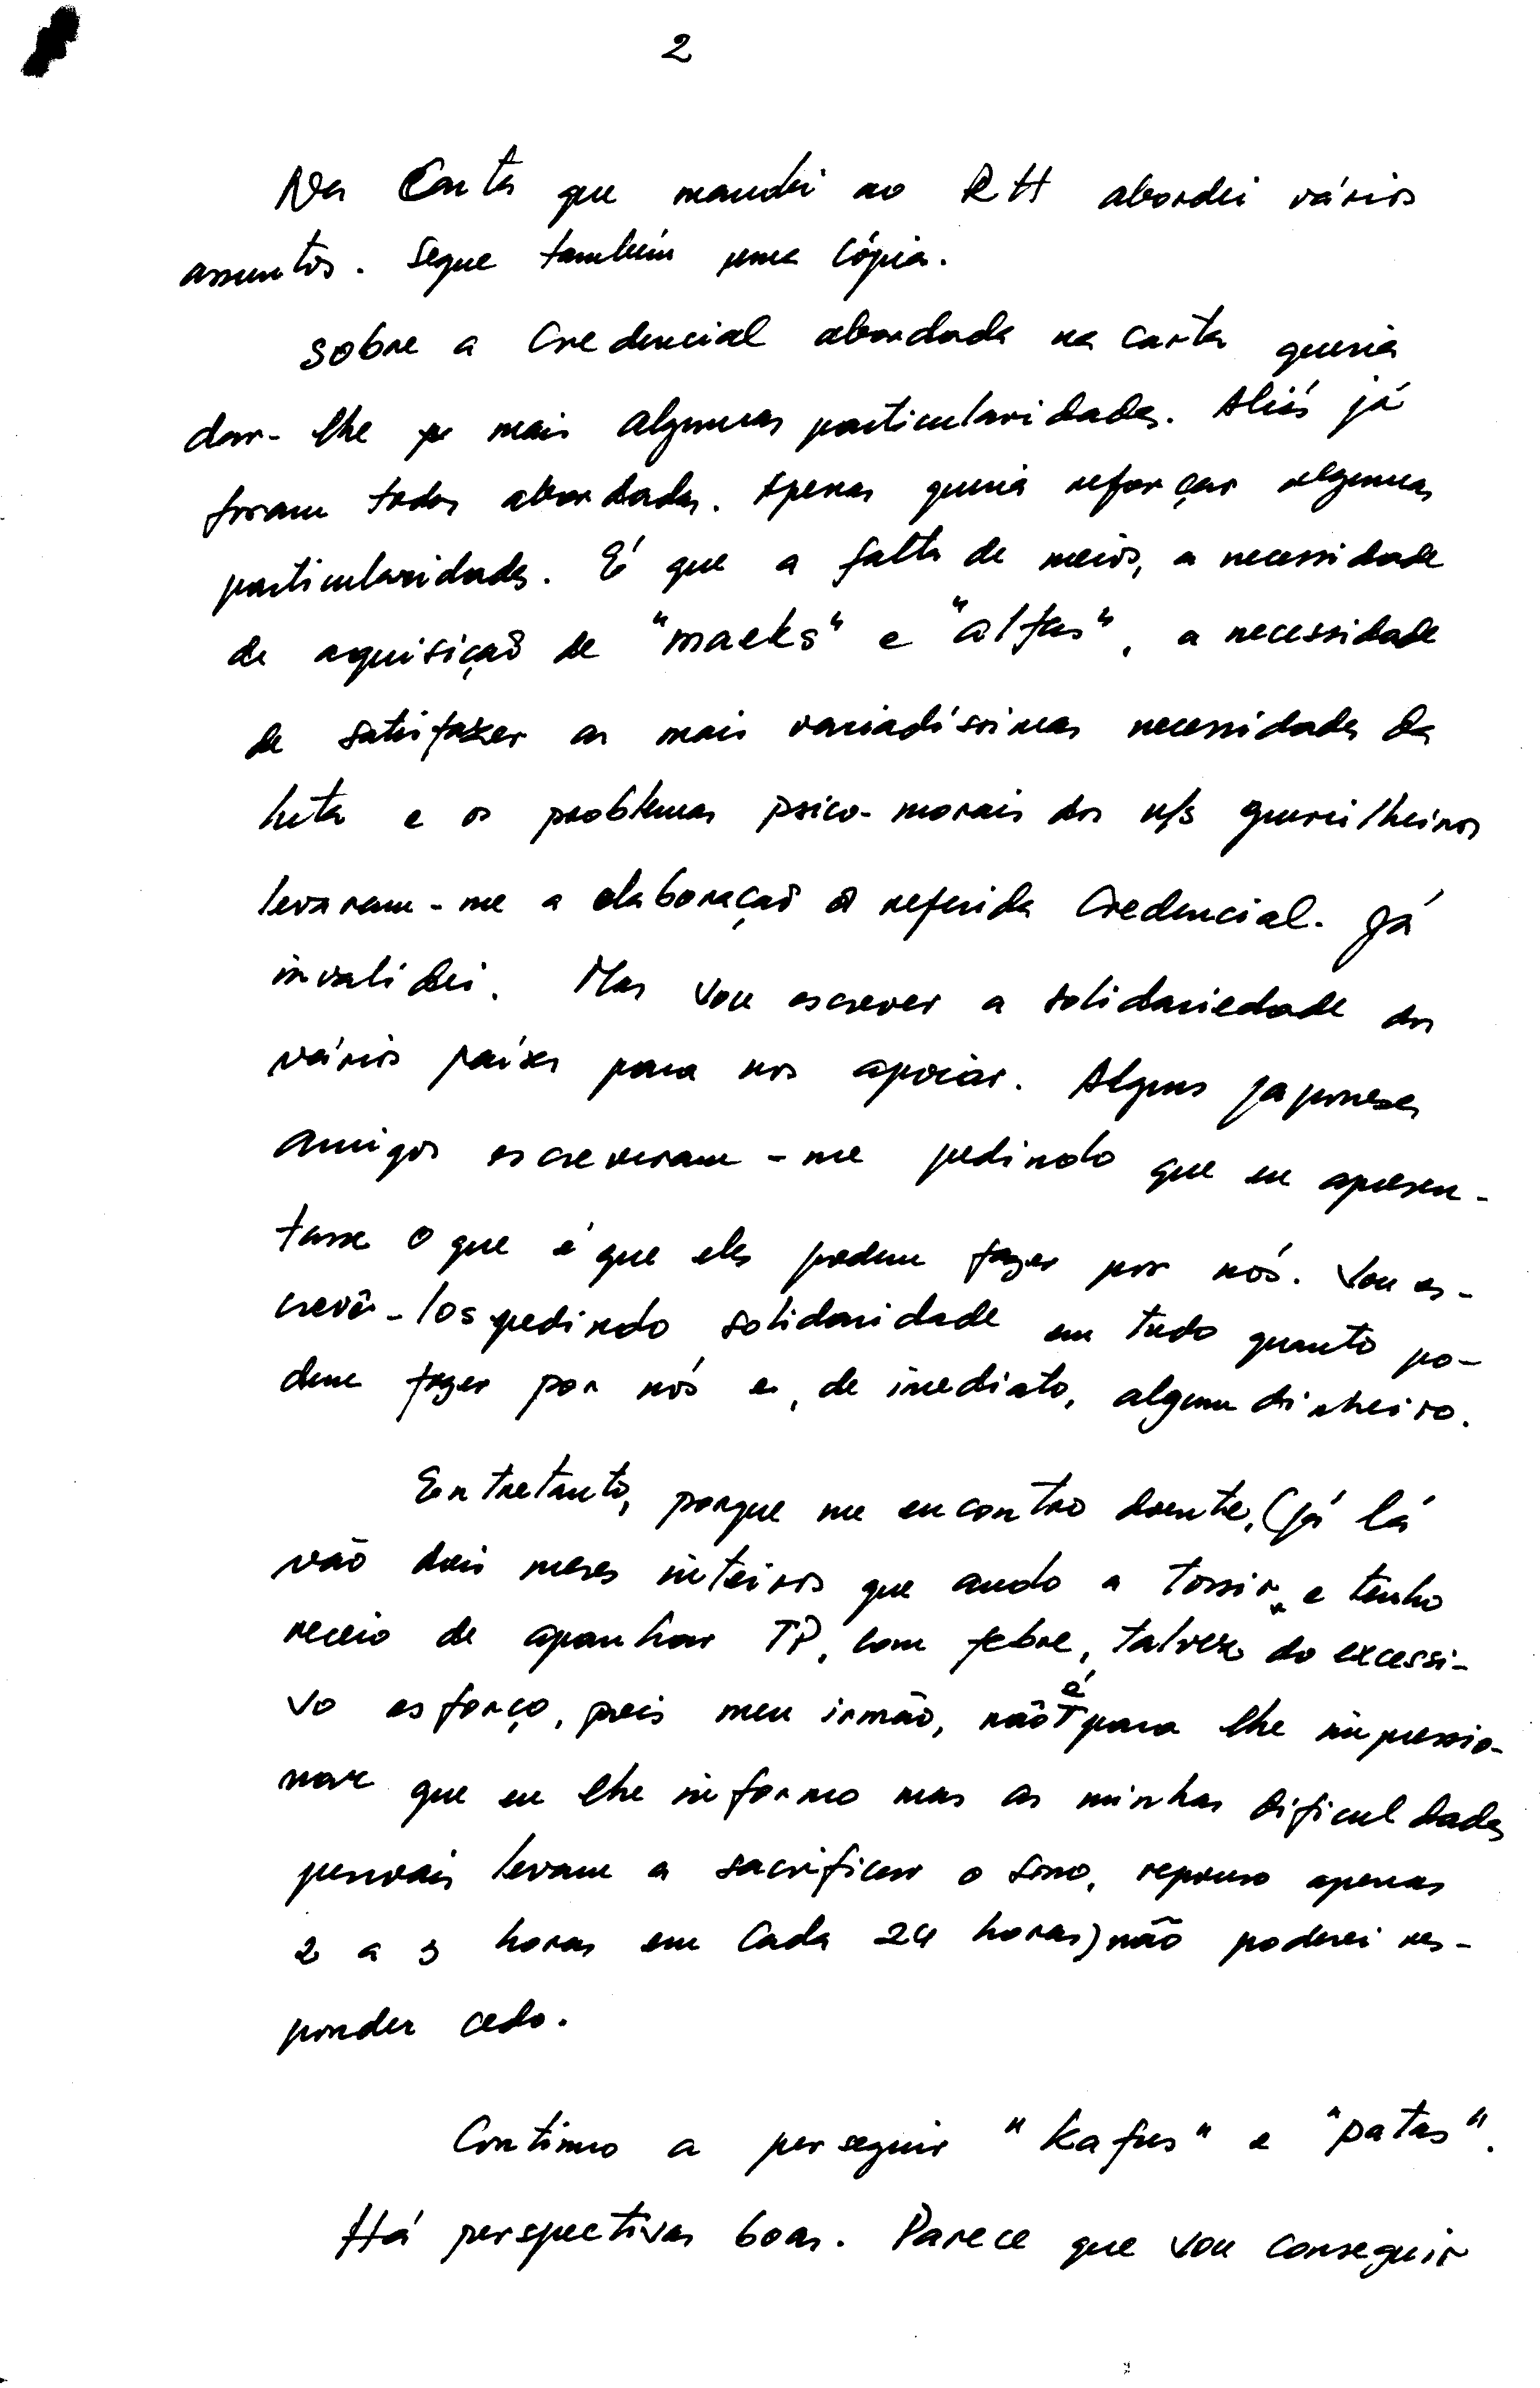 2
Na Carta que mandei ao RH abordei vários
assuntos. Segue também uma cópia.
Sobre a Credencial abordada na carta queria
dar-lhe mais algumas particularidades. Aliás já
foram todas abordadas. Apenas queria reforçar algumas
particularidades. É que a falta de meios, a necessidade
de aquisição de "maeks" e "alfas", a necessidade
de satisfazer as mais variadíssimas necessidades da
luta e os problemas psico-morais dos n/s guerilheiros
levaram-me a elaboração a referida Credencial. Já
invalidei. Mas vou escrever a solidariedade dos
vários países para nos apoiar. Alguns japoneses
amigos escreveram-me pedindo que eu apresen-
tasse o que é que eles podem fazer por nós. Vou es-
crevê-los pedindo solidaridade em tudo quanto po-
dem fazer por nós e, de imediato, algum dinheiro.
Entretanto, porque me encontro doente, (já lá
vão dois meses inteiros que ando a tossir e tenho
receio de apanhar TP, com febre, talvez do excessi-
vo esforço, pois meu irmão, não é para lhe impressio-
nar que eu lhe informo mas as minhas dificuldades
pessoais levam a sacrificar o sono, repouso apenas
2 a 3 horas em cada 24 horas) não poderei res-
ponder cedo.
Continuo a perseguir "Kafus" e "patas".
Há perspectivas boas. Parece que vou conseguir